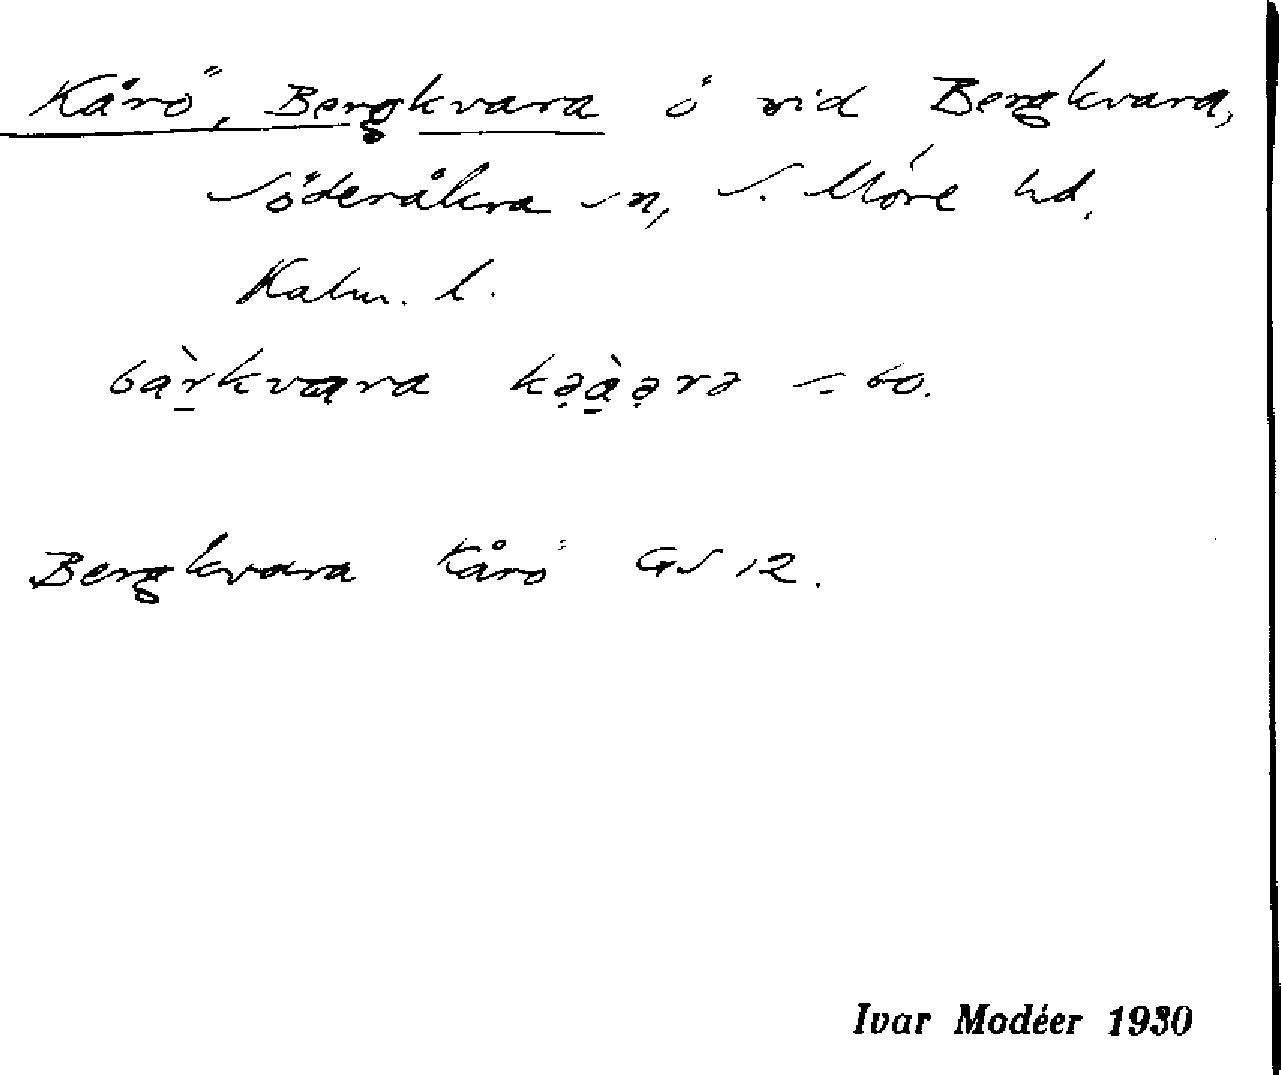 Kårö, Bergkvara ö vid Bergkvara,
Söderåkra sn, S. Möre hd.
Kalm. l.
bàrkvara kəàərə = bo.
Bergkvara Kårö GS 12.
Ivar Modéer 1930